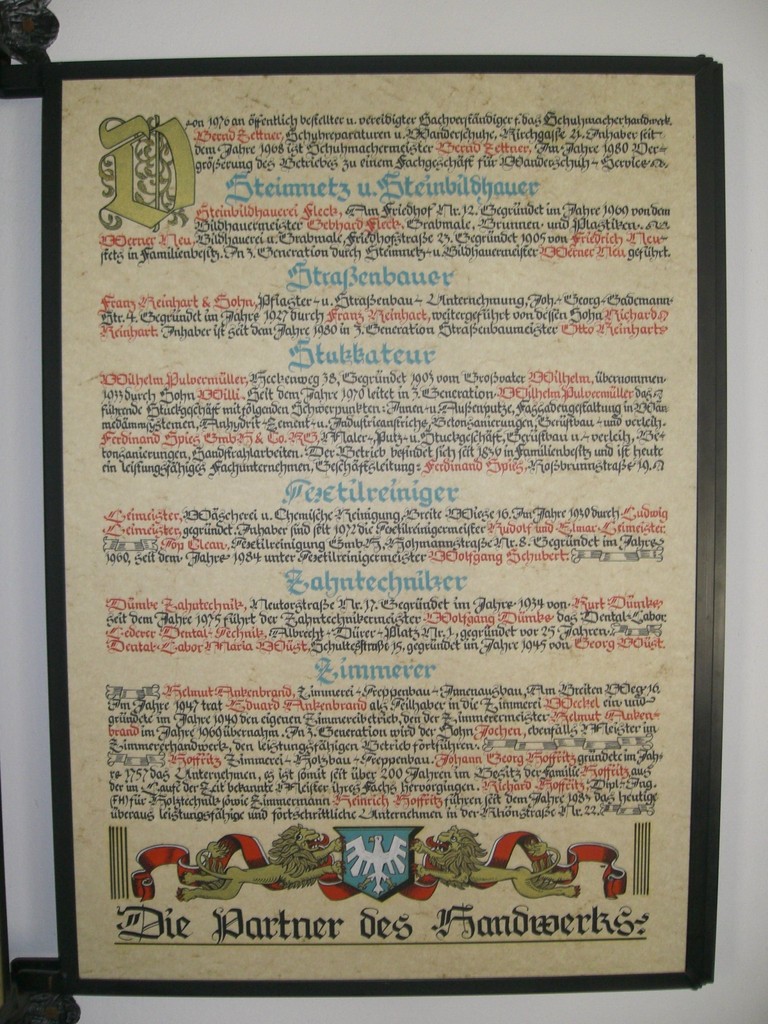 Von 1976 an öffentlich bestellter u. vereidigter Sachverständiger f. das Schuhmacherhandwerk.
Bernd Zettner, Schuhreparaturen u. Wanderschuhe, Kirchgasse 21. Inhaber seit
dem Jahre 1968 ist Schuhmachermeister Bernd Zettner. Im Jahre 1980 Ver-
größerung des Betriebes zu einem Fachgeschäft für Wanderschuh-Service.
Steinmetz u. Steinbildhauer
Steinbildhauerei Fleck, Am Friedhof Nr. 12. Gegründet im Jahre 1969 von dem
Bildhauermeister Gebhard Fleck. Grabmale, Brunnen und Plastiken.
Werner Neu, Bildhauerei u. Grabmale, Friedhofstraße 23. Gegründet 1905 von Friedrich Neu
stets in Familienbesitz. In 3. Generation durch Steinmetz- u. Bildhauermeister Werner Neu geführt.
Straßenbauer
Franz Reinhart & Sohn, Pflaster- u. Straßenbau-Unternehmung, Joh.-Georg-Gademann-
Str. 4. Gegründet im Jahre 1927 durch Franz Reinhart, weitergeführt von dessen Sohn Richard
Reinhart. Inhaber ist seit dem Jahre 1980 in 3. Generation Straßenbaumeister Otto Reinhart
Stukkateur
Wilhelm Pulvermüller, Heckenweg 38, Gegründet 1903 vom Großvater Wilhelm, übernommen
1933 durch Sohn Willi. Seit dem Jahre 1970 leitet in 3. Generation Wilhelm Pulvermüller das
führende Stuckgeschäft mit folgenden Schwerpunkten: Innen- u. Außenputze, Fassadengestaltung in Wär-
medämmsystemen, Anhydrit-Zement- u. Industrieestriche, Betonsanierungen, Gerüstbau- und verleih.
Ferdinand Spies GmbH & Co. KG, Maler-, Putz- u. Stuckgeschäft, Gerüstbau u. -verleih, Be-
tonsanierungen, Sandstrahlarbeiten. Der Betrieb befindet sich seit 1836 in Familienbesitz und ist heute
ein leistungsfähiges Fachunternehmen, Geschäftsleitung: Ferdinand Spies, Roßbrunnstraße 19.
Textilreiniger
Leimeister, Wäscherei u. Chemische Reinigung, Breite Wiese 16. Im Jahre 1930 durch Ludwig
Leimeister, gegründet. Inhaber sind seit 1972 die Textilreinigermeister Rudolf und Elmar Leimeister.
Top Clean, Textilreinigung GmbH, Hohmannstraße Nr. 8. Gegründet im Jahre
1969, seit dem Jahre 1984 unter Textilreinigermeister Wolfgang Schubert.
Zahntechniker
Dümke Zahntechnik, Neutorstraße Nr. 17. Gegründet im Jahre 1934 von Kurt Dümke,
seit dem Jahre 1975 führt der Zahntechnikermeister Wolfgang Dümke das Dental-Labor
Lederer Dental-Technik, Albrecht-Dürer-Platz Nr. 1, gegründet vor 25 Jahren.
Dental-Labor Maria Wüst, Schultesstraße 15, gegründet im Jahre 1945 von Georg Wüst.
Zimmerer
Helmut Ankenbrand, Zimmerei-Treppenbau-Innenausbau, Am Breiten Weg 16.
Im Jahre 1947 trat Eduard Ankenbrand als Teilhaber in die Zimmerei Weckel ein und
gründete im Jahre 1949 den eigenen Zimmereibetrieb, den der Zimmerermeister Helmut Anken-
brand im Jahre 1969 übernahm. In 3. Generation wird der Sohn Jochen, ebenfalls Meister im
Zimmererhandwerk, den leistungsfähigen Betrieb fortführen.
Hoffritz Zimmerei-Holzbau-Treppenbau. Johann Georg Hoffritz gründete im Jah-
re 1757 das Unternehmen, es ist somit seit über 200 Jahren im Besitz der Familie Hoffritz aus
der im Laufe der Zeit bekannte Meister ihres Fachs hervorgingen. Richard Hoffritz, Dipl.-Ing.
(FH) für Holztechnik sowie Zimmermann Heinrich Hoffritz führen seit dem Jahre 1983 das heutige
überaus leistungsfähige und fortschrittliche Unternehmen in der Rhönstraße Nr. 22.
Die Partner des Handwerks